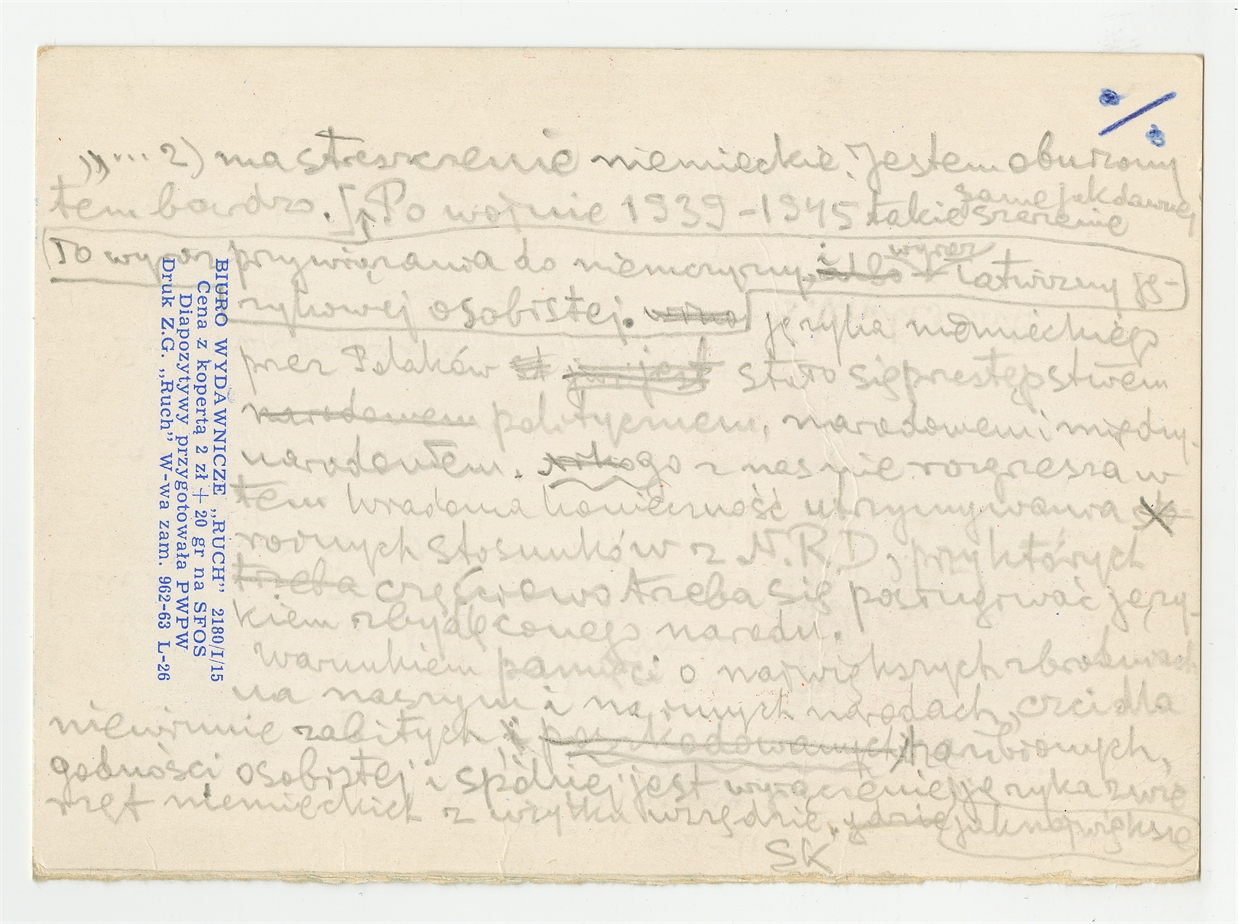 „... 2) ma streszczenie niemieckie. Jestem oburzony
tem bardzo. [Po wojnie 1939-1945 takie same jak dawniej szerzenie
To wyraz przywiązania do niemczyzny, i wyraz łatwizny ję-
zykowej osobistej. języka niemieckiego
przez Polaków stało się przestępstwem
narodowem politycznem, narodowem i między-
narodowem. nikogo z nas nie rozgrzesza w
tem konieczność utrzymywania
rożnych stosunków z N.R.D., przy których
trzeba częściowo trzeba się posługiwać języ-
kiem zbydlęconego narodu.
Warunkiem pamięci o największych zbrodniach
na naszym i na innych narodach, czci dla
niewinnie zabitych i poszkodowanych, hańbionych,
godności osobistej i spólnej jest wyrzucenie języka zwie
rząt niemieckich z użytku wszędzie, gdzie jak największe
SK
BIURO WYDAWNICZE „RUCH” 2180/I/15
Cena z kopertą 2 zł + 20 gr na SFOS
Diapozytywy przygotowała PWPW
Druk Z.G. „Ruch” W-wa zam. 962-63 L-26